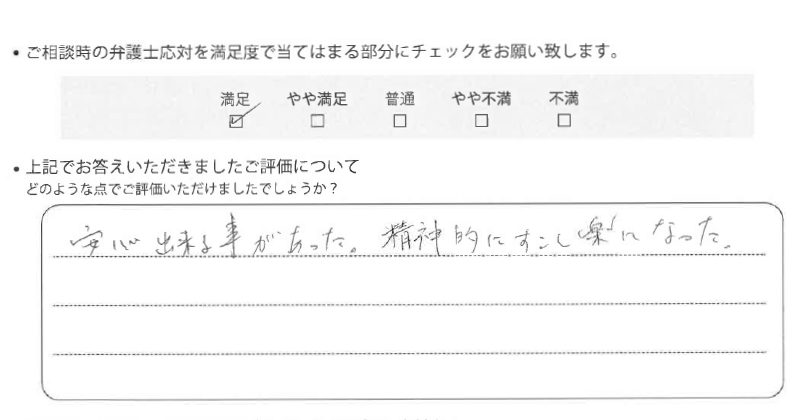 • ご相談時の弁護士応対を満足度で当てはまる部分にチェックをお願い致します。
満足 やや満足 普通 やや不満 不満
☑ ☐ ☐ ☐ ☐
• 上記でお答えいただきましたご評価について
どのような点でご評価いただけましたでしょうか？
安心出来る事があった。精神的にすこし楽になった。